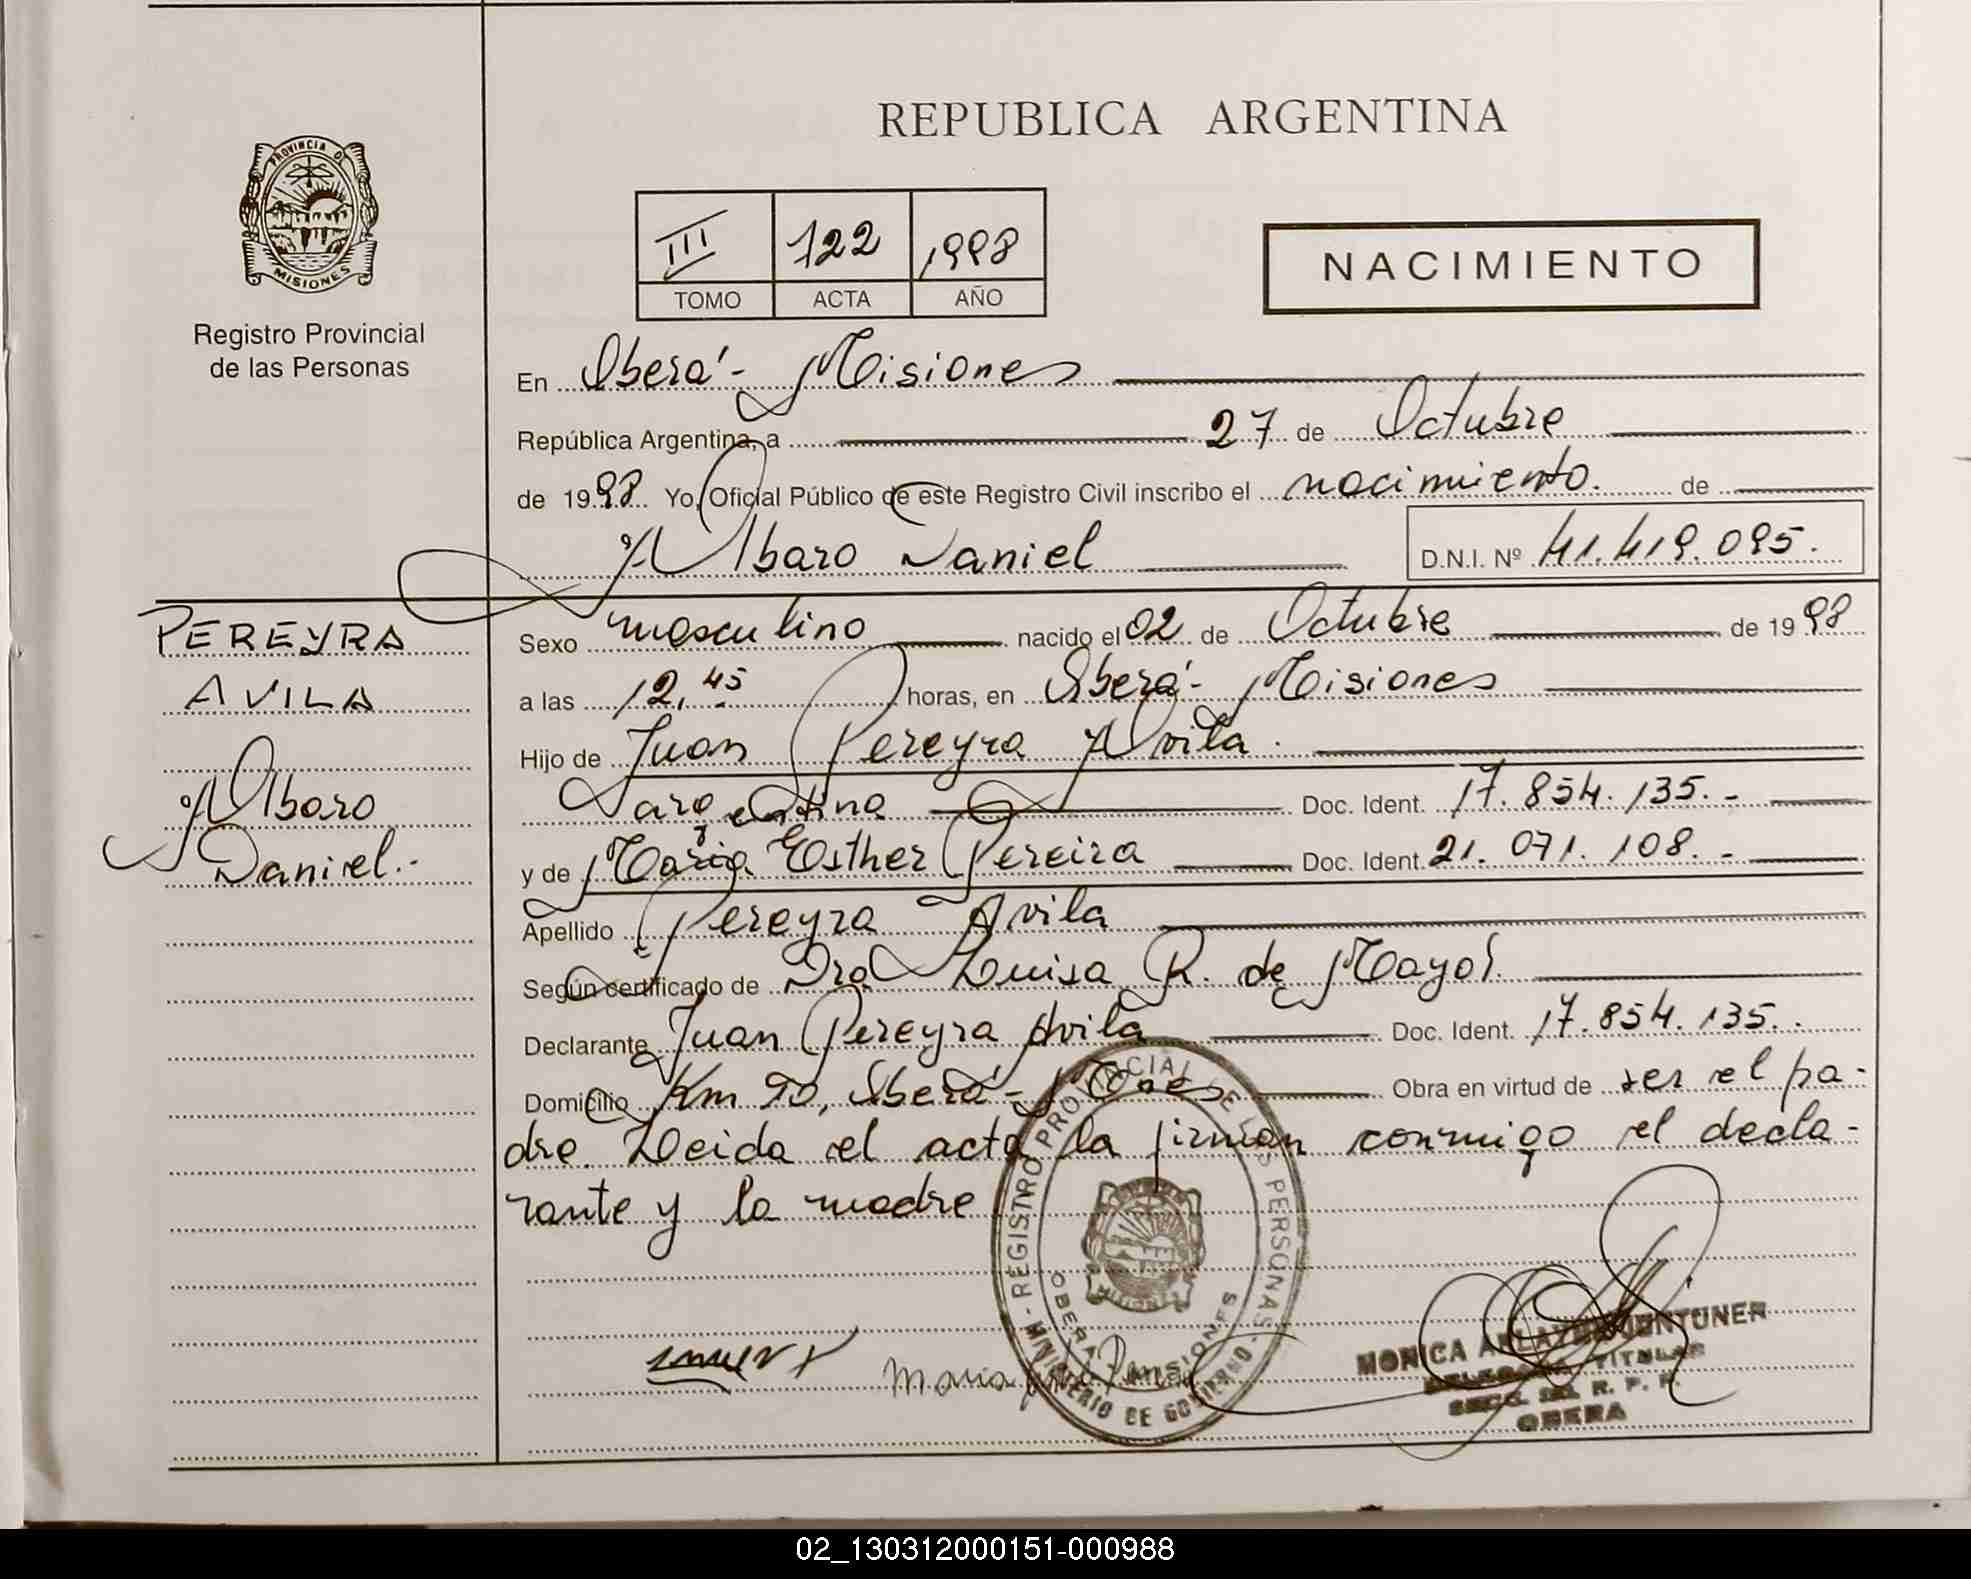 PROVINCIA DE
MISIONES
Registro Provincial
de las Personas
REPUBLICA ARGENTINA
III 122 1998
TOMO ACTA AÑO
NACIMIENTO
En Oberá - Misiones
República Argentina, a 27 de Octubre
de 1998 Yo, Oficial Público de este Registro Civil inscribo el nacimiento. de
Albaro Daniel D.N.I. Nº 41.419.095.
PEREYRA
AVILA
Albaro
Daniel.-
Sexo masculino nacido el 02 de Octubre de 1998
a las 12,45 horas, en Oberá - Misiones
Hijo de Juan Pereyra Avila.
argentino Doc. Ident. 17.854.135.-
y de María Esther Pereira Doc. Ident. 21.071.108.-
Apellido Pereyra Avila
Según certificado de Dra. Luisa R. de Mayol.
Declarante Juan Pereyra Avila Doc. Ident. 17.854.135..
Domicilio Km 90, Oberá - Mnes Obra en virtud de ser el pa-
dre. Leida el acta la firman conmigo el decla-
rante y la madre
REGISTRO PROVINCIAL DE LAS PERSONAS
MINISTERIO DE GOBIERNO
OBERA MISIONES
MISIONES
Maria
MONICA
TITULAR
SECC. DEL R. P. P.
OBERA
02_130312000151-000988